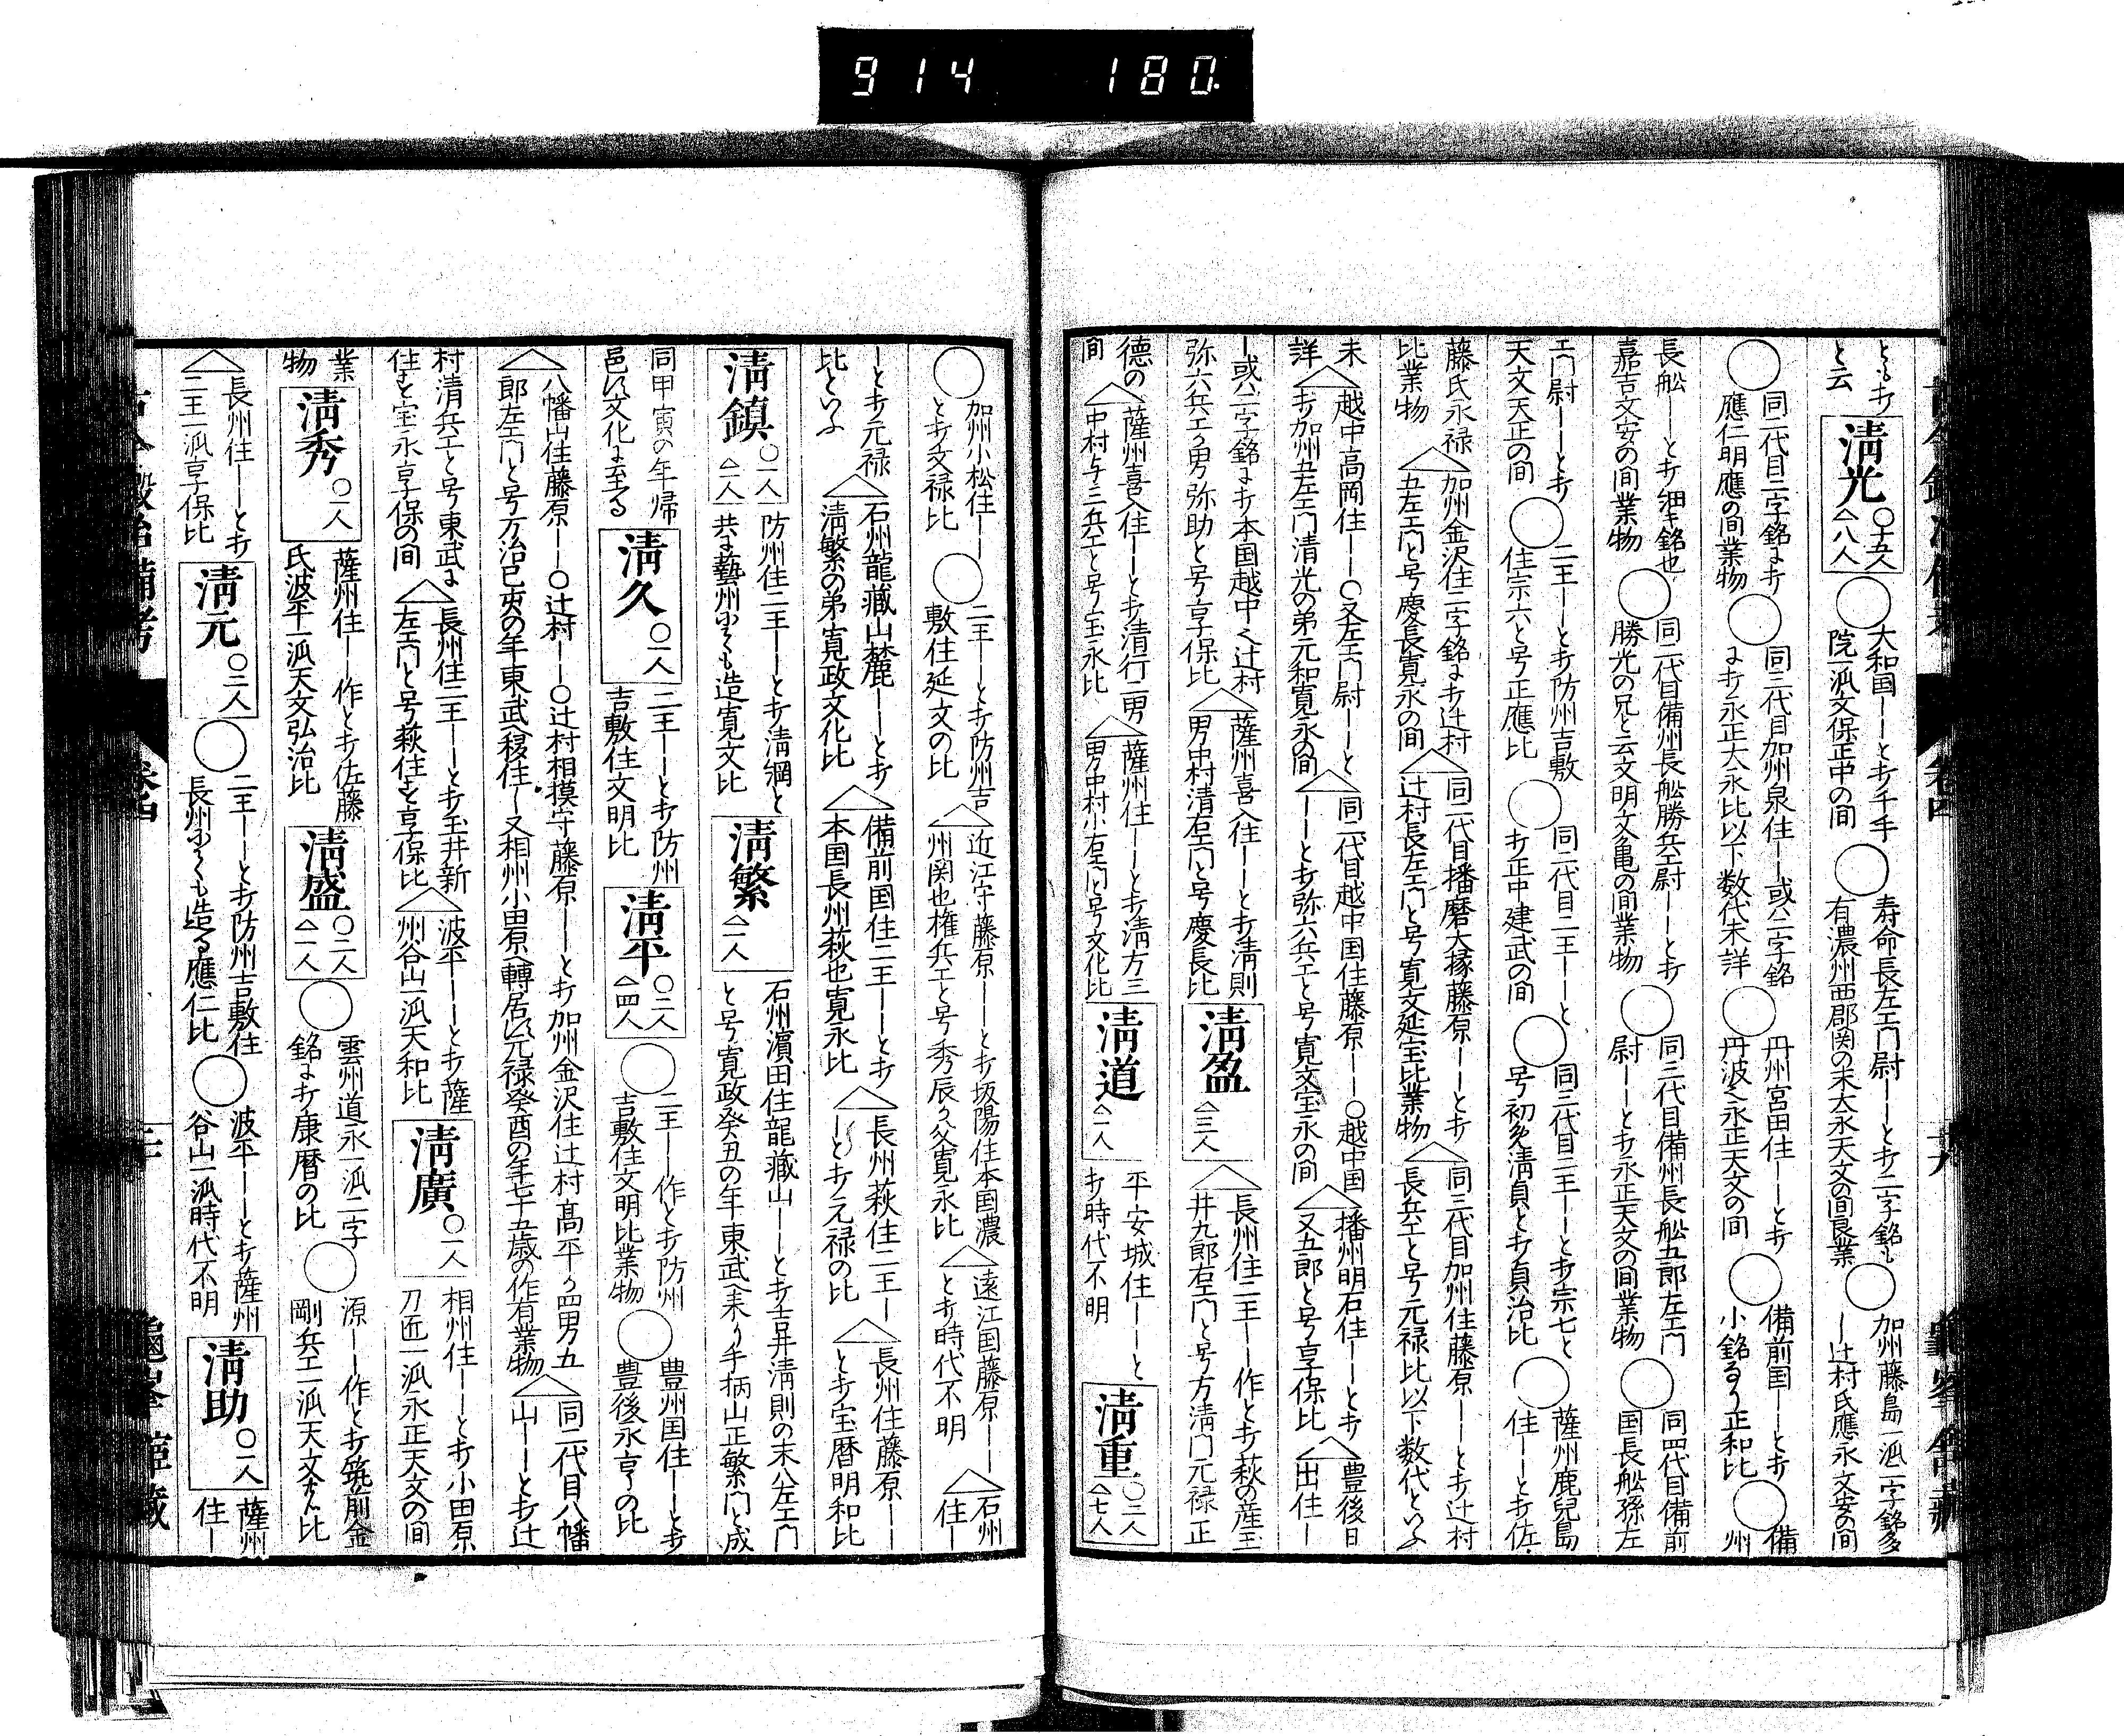 914 180.
とも打
と云
清光 ○十五人 △八人
○大和国――と打千手
院一派文保正中の間
○寿命長左エ門尉――と打二字銘も
有濃州西郡関の末大永天文の間良業
○加州藤島一派二字銘多
―辻村氏應永文安の間
○同二代目二字銘ニ打
應仁明應の間業物
○同三代目加州泉住――或ハ二字銘
ニ打永正大永比以下数代未詳
○丹州宮田住――と打
丹波之永正天文の間
○備前国――と打
小銘なり正和比
○備州
長舩――と打細キ銘也
嘉吉文安の間業物
○同二代目備州長舩勝兵エ尉――と打
勝光の兄と云文明文亀の間業物
○同三代目備州長舩五郎左エ門
尉――と打永正天文の間業物
○同四代目備前
国長舩孫左
エ門尉――と打
天文天正の間
○二王――と打防州吉敷
住宗六と号正應比
○同二代目二王――と
打正中建武の間
○同三代目二王――と打宗七と
号初免清貞と打貞治比
○薩州鹿児島
住――と打佐
藤氏永禄
比業物
△加州金沢住二字銘ニ打辻村
五左エ門と号慶長寛永の間
△同二代目播磨大掾藤原――と打
辻村長左エ門と号寛文延宝比業物
△同三代目加州住藤原――と打辻村
長兵エと号元禄比以下数代といふ
未
詳
△越中高岡住――○又左エ門尉――と
打加州五左エ門清光の弟元和寛永の間
△同二代目越中国住藤原――○越中国
――と打弥六兵エと号寛文宝永の間
△播州明石住――と打
又五郎と号享保比
△豊後日
出住―
―或ハ二字銘ニ打本国越中之辻村
弥六兵エヶ男弥助と号享保比
△薩州喜入住――と打清則
男中村清右エ門と号慶長比
清盈 △三人
△長州住二王――作と打萩の産玉
井九郎右エ門と号方清門元禄正
徳の
間
△薩州喜入住――と打清行二男
中村与三兵エと号宝永比
△薩州住――と打清方三
男中村小右エ門と号文化比
清道 △一人
平安城住――と
打時代不明
清重 ○二人 △七人
○加州小松住――
と打文禄比
○二王――と打防州吉
敷住延文の比
△近江守藤原――と打坂陽住本国濃
州関也権兵エと号秀辰ヶ父寛永比
△遠江国藤原――
と打時代不明
△石州
住―
―と打元禄
比といふ
△石州龍蔵山麓――と打
清繁の弟寛政文化比
△備前国住二王――と打
本国長州萩也寛永比
△長州萩住二王―
―と打元禄の比
△長州住藤原――
と打宝暦明和比
清鎮 ○一人 △一人
防州住二王――と打清綱と
共ニ藝州ニても造寛文比
清繁 △一人
石州濱田住龍蔵山――と打吉井清則の末八左エ門
と号寛政癸丑の年東武ヘ来り手柄山正繁門と成
同甲寅の年帰
邑以文化ニ至る
清久 ○一人
二王――と打防州
吉敷住文明比
清平 ○二人 △四人
○二王――作と打防州
吉敷住文明比業物
○豊州国住――と打
豊後永享の比
△八幡山住藤原――○辻村――○辻村相摸守藤原――と打加州金沢住辻村髙平ヶ四男五
郎左エ門と号万治己亥の年東武ヘ移住し又相州小田原ヘ轉居以元禄癸酉の年七十五歳の作有業物
△同二代目八幡
山――と打辻
村清兵エと号東武ニ
住を宝永享保の間
△長州住二王――と打玉井新
左エ門と号萩住を享保比
△波平――と打薩
州谷山一派天和比
清廣 ○一人
相州住――と打小田原
刀匠一派永正天文の間
業
物
清秀 ○一人
薩州住――作と打佐藤
氏波平一派天文弘治比
清盛 ○二人 △一人
○雲州道永一派二字
銘ニ打康暦の比
○源――作と打筑前金
剛兵エ一派天文比
△長州住――と打
二王一派享保比
清元 ○二人
○二王――と打防州吉敷住
長州ニても造る應仁比
○波平――と打薩州
谷山一派時代不明
清助 ○一人
薩州
住―